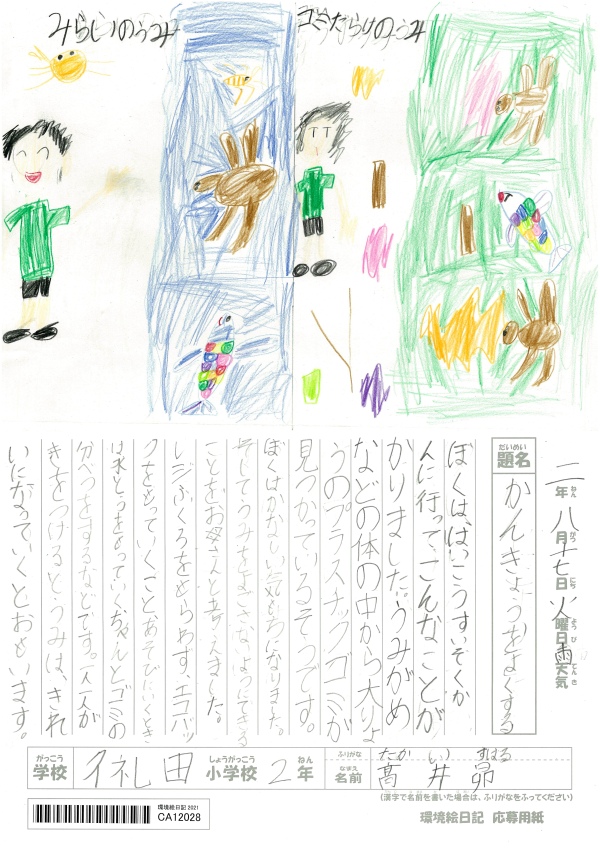 みらいのうみ
ゴミだらけのうみ
二年八月十七日火曜日雨天気
ねん がつ にち ようび てんき
だいめい
題名
かんきょうをよくする
ぼくは、はっこうすいぞくか
んに行って、こんなことが
かりました。うみがめ
などの体の中から大りょ
うのプラスチックゴミが
見つかっているそうです。
ぼくはかなしい気もちになりました。
そしてうみをよごさないようにできる
ことをお母さんと考えました。
レジぶくろをもらわず、エコバッ
クをもっていくことあそびにいくとき
は水とうをもっていく。ちゃんとゴミの
分べつをするなどです。一人一人が
きをつけるとうみは、きれ
いになっていくとおもいます。
がっこう しょうがっこう ねん ふりがな たか い すばる
学校 田 小学校 2 年 なまえ 名前 髙 井 昴
(漢字で名前を書いた場合は、ふりがなをふってください)
環境絵日記 2021
CA12028
環境絵日記 応募用紙